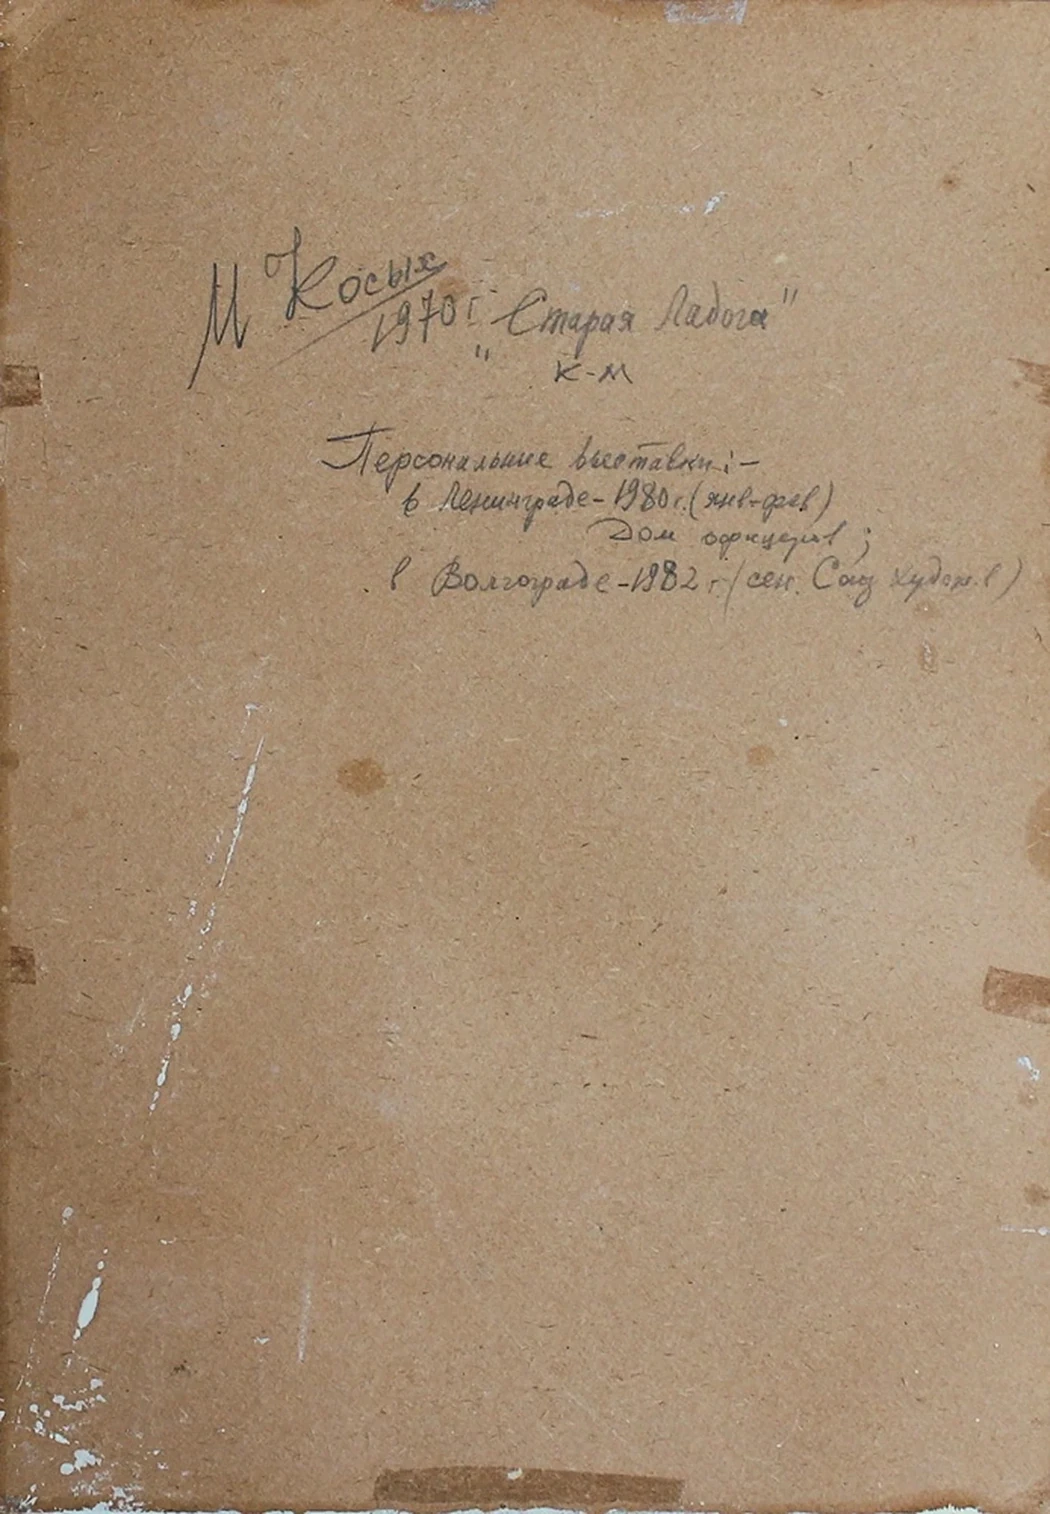 М Косых
1970 г. "Старая Ладога"
к-м
Персональные выставки:-
в Ленинграде-1980г.(янв-фев)
Дом офицеров;
в Волгограде-1982 г.(сен. Союз худож.в)